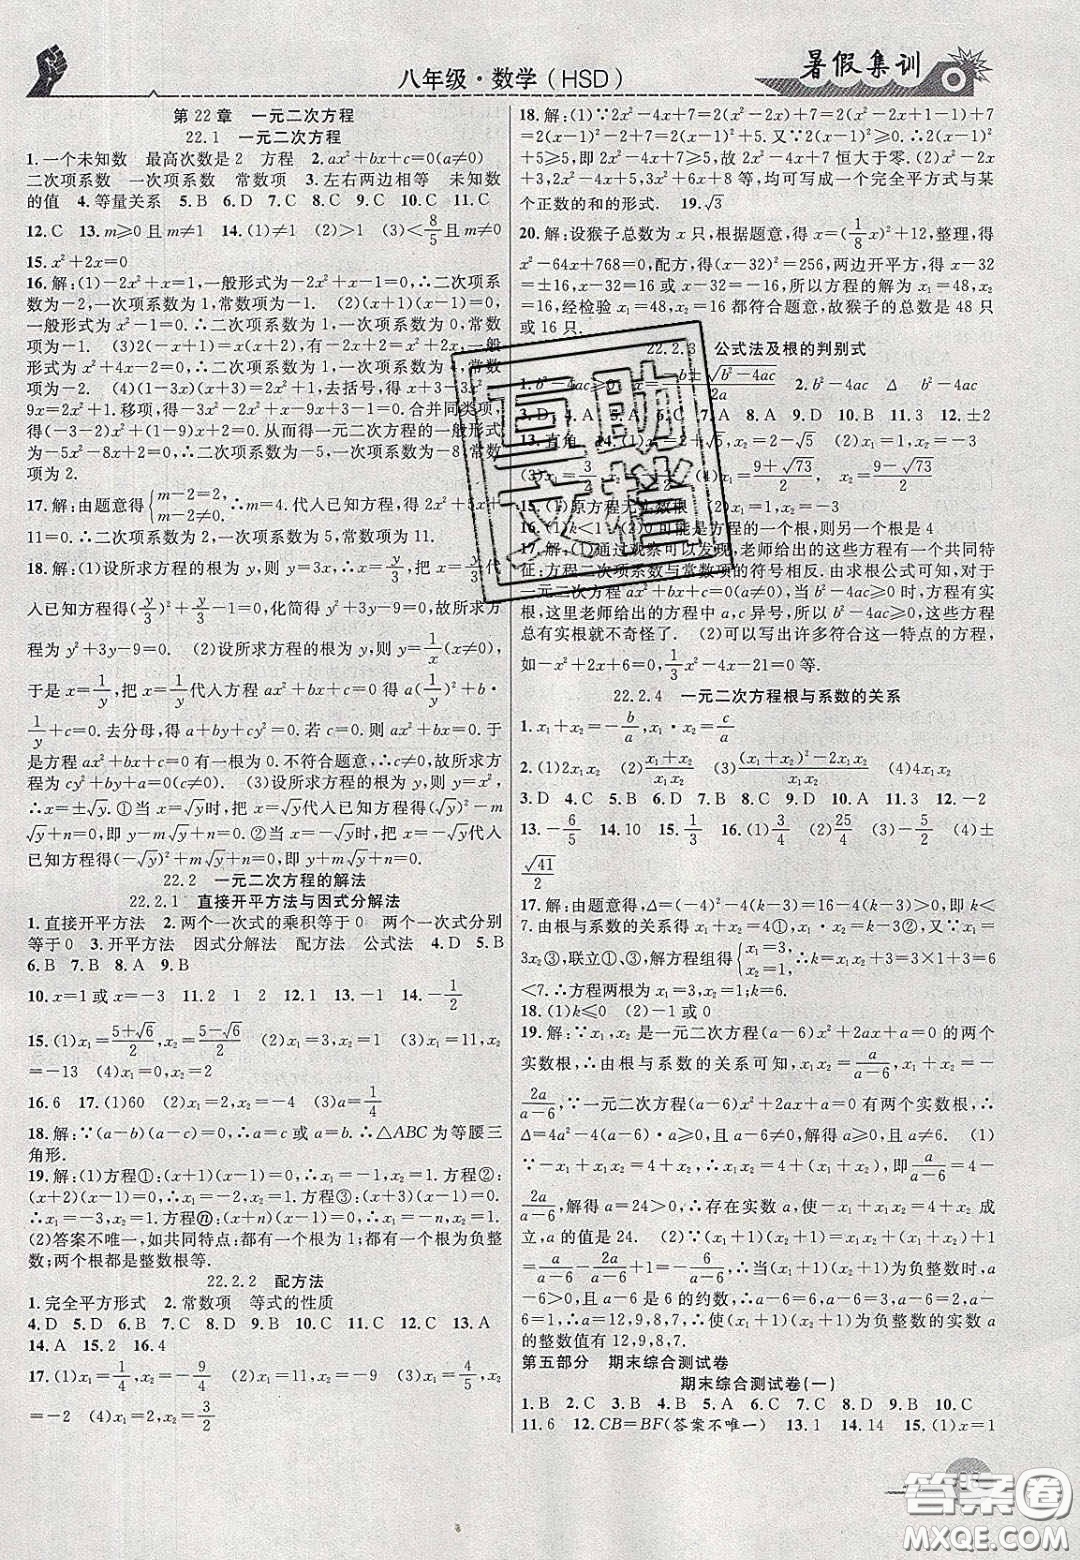 八年级·数学(HSD)
暑假集训
第22章 一元二次方程
22.1 一元二次方程
1.一个未知数 最高次数是2 方程 2.ax²+bx+c=0(a≠0)
二次项系数 一次项系数 常数项 3.左右两边相等 未知数
的值 4.等量关系 5.B 6.D 7.C 8.C 9.C 10.C 11.C
12.C 13.m≥0且m≠1 14.(1)≠1 (2)>1 (3)<8/5且m≠0
15.x²+2x=0
16.解:(1)-2x²+x=1,一般形式为-2x²+x-1=0,∴二次项系
数为-2,一次项系数为1,常数项为-1. (2)(x+1)(x-1)=0,
一般形式为x²-1=0.∴二次项系数为1,一次项系数为0,常数
项为-1. (3)2(x²-1)+4x=2x,一般
形式为x²+x-2=0.∴二次项系数为1,一次项系数为1,常数
项为-2. (4)(1-3x)(x+3)=2x²+1,去括号,得
9x=2x²+1.移项,得-3x²-8x+3-2x²-1=0.合并同类项,
得-5x²-8x+2=0.从而得一元二次方程的一般形式
为-5x²-8x+2=0.∴二次项系数为-5,一次项系数为-8,常数
项为2.
17.解:由题意得{m-2=2, m-2≠0,∴m=4.代入已知方程,得2x²+5x+
11=0.∴二次项系数为2,一次项系数为5,常数项为11.
18.解:(1)设所求方程的根为y,则y=3x,∴x=y/3,把x=y/3代
入已知方程得(y/3)²+y/3-1=0,化简得y²+3y-9=0,故所求方
程为y²+3y-9=0. (2)设所求方程的根为y,则y=1/x(x≠0),
于是x=1/y,把x=1/y代入方程ax²+bx+c=0,得a(1/y)²+b·
1/y+c=0.去分母,得a+by+cy²=0.若c=0,则ax²+bx=0.于
是方程ax²+bx+c=0有一根为0.不符合题意,∴c≠0,故所求方
程为cy²+by+a=0(c≠0). (3)设所求方程的根为y,则y=x²,
∴x=±√y.①当x=√y时,把x=√y代入已知方程得(√y)²-m
√y+n=0,即y-m√y+n=0.②当x=-√y时,把x=-√y代入
已知方程得(-√y)²+m√y+n=0,即y+m√y+n=0.
22.2 一元二次方程的解法
22.2.1 直接开平方法与因式分解法
1.直接开平方法 2.两个一次式的乘积等于0 两个一次式分别
等于0 3.开平方法 因式分解法 配方法 公式法 4.D 5.B
6.B 7.B 8.A 9.B
10.x=1或x=-3 11.2 1 2 12.1 13.-1 14.-1/2
15.(1)x₁=(5+√6)/2,x₂=(5-√6)/2 (2)x₁=3,x₂=1 (3)x₁=11,x₂
=-13 (4)x₁=1,x₂=2
16.6 17.(1)60 (2)x₁=2,x₂=-4 (3)a=1/4
18.解:∵(a-b)(a-c)=0,∴a=c或a=b.∴△ABC为等腰三
角形.
19.解:(1)方程①:(x+1)(x-1)=0,∴x₁=-1,x₂=1.方程②:
(x+2)(x-1)=0,∴x₁=-2,x₂=1.方程③:(x+3)(x-1)=0.
∴x₁=-3,x₂=1.方程ⓝ:(x+n)(x-1)=0,∴x₁=-n,x₂=1.
(2)答案不唯一,如共同特点:都有一个根为1;都有一个根为负整
数;两个根都是整数根等.
22.2.2 配方法
1.完全平方形式 2.常数项 等式的性质
4.D 5.D 6.B 7.D 8.D 9.C 10.B 11.C 12.D 13.A
14.A 15.2 16.4
17.(1)x₁=-1/4,x₂=-9/4 (2)x₁=3,x₂=-2/3 (3)x₁=4,x₂
=-2 (4)x₁=x₂=3/2
18.解:(1)∵2x²-4x+7=2(x²-2x)+7=2(x²-2x+1-1)+7
=2(x-1)²-2+7=2(x-1)²+5.又∵2(x-1)²≥0,∴2(x-1)²
+5≥5,即2x²-4x+7≥5,故2x²-4x+7恒大于零. (2)x²-2x
+3,2x²-2x+5,3x²+6x+8等,均可写成一个完全平方式与某
个正数的和的形式. 19.√3
20.解:设猴子总数为x只,根据题意,得x=(1/8x)²+12,整理,得
x²-64x+768=0,配方,得(x-32)²=256,两边开平方,得x-32
=±16,x-32=16或x-32=-16,所以方程的解为x₁=48,x₂
=16,经检验x₁=48,x₂=16都符合题意,故猴子的总数是48只
或16只.
22.2.3 公式法及根的判别式
2.b²-4ac Δ b²-4ac
3.D 4.A 7.A 8.A 9.D 10.B 11.3 12.±2
13.直角 14.(1)x₁=2+√5,x₂=2-√5 (2)x₁=1,x₂=-3
x₁=(9+√73)/4,x₂=(9-√73)/4
15.(1)原方程无实数根 (2)x₁=1,x₂=-3
16.(1)k<1 (2)0可能是方程的一个根,另一个根是4
17.解:(1)通过观察可以发现,老师给出的这些方程有一个共同特
征:方程二次项系数与常数项的符号相反.由求根公式可知,对于
一元二次方程ax²+bx+c=0(a≠0),当b²-4ac≥0时,方程有实
根,这里老师给出的方程中a,c异号,所以b²-4ac≥0,这些方程
总有实根就不奇怪了. (2)可以写出许多符合这一特点的方程,
如-x²+2x+6=0,1/3x²-4x-21=0等.
22.2.4 一元二次方程根与系数的关系
1.x₁+x₂=-b/a,x₁·x₂=c/a
2.(1)2x₁x₂ (2)(x₁+x₂)/x₁x₂ (3)((x₁+x₂)²-2x₁x₂)/x₁x₂ (4)4x₁x₂
3.D 4.C 5.B 6.C 7.B 8.B 9.D 10.A 11.3 12.-2
13.-6/5 14.10 15.1/3 16.(1)3/4 (2)25/4 (3)-5/2 (4)±
√41/2
17.解:由题意得,Δ=(-4)²-4(k-3)=16-4k+12>0,即k<
7.由根与系数的关系得x₁+x₂=4①,x₁x₂=k-3②,又∵x₁=
3x₂③,联立①、③,解方程组得{x₁=3, x₂=1,∴k=x₁x₂+3=3×1+3=6
<7.∴方程两根为x₁=3,x₂=1;k=6.
18.(1)k≤0 (2)-1或0
19.解:∵x₁,x₂是一元二次方程(a-6)x²+2ax+a=0的两个
实数根,∴由根与系数的关系可知,x₁x₂=a/(a-6),x₁+x₂=
-2a/(a-6).∵一元二次方程(a-6)x²+2ax+a=0有两个实数根,∴
Δ=4a²-4(a-6)·a≥0,且a-6≠0,解得,a≥0,且a≠6. (1)
∵-x₁+x₁x₂=4+x₂,∴x₁x₂=4+(x₁+x₂),即a/(a-6)=4-
2a/(a-6),解得a=24>0;∴存在实数a,使-x₁+x₁x₂=4+x₂成
立,a的值是24. (2)∵(x₁+1)(x₂+1)=x₁x₂+(x₁+x₂)+1
=a/(a-6)-2a/(a-6)+1=-6/(a-6),∴当(x₁+1)(x₂+1)为负整数时,
a-6>0,且a-6是6的约数,∴a-6=6,a-6=3,a-6=2,
a-6=1;∴a=12,9,8,7;∴使(x₁+1)(x₂+1)为负整数的实数a
的整数值有12,9,8,7.
第五部分 期末综合测试卷
期末综合测试卷(一)
1.B 2.B 3.B 4.B 5.A 6.D 7.C 8.B 9.B 10.C
11.6 12.CB=BF(答案不唯一) 13.1 14.14 15.(1)x=1
互助
文档
答案圈
MXQE.COM